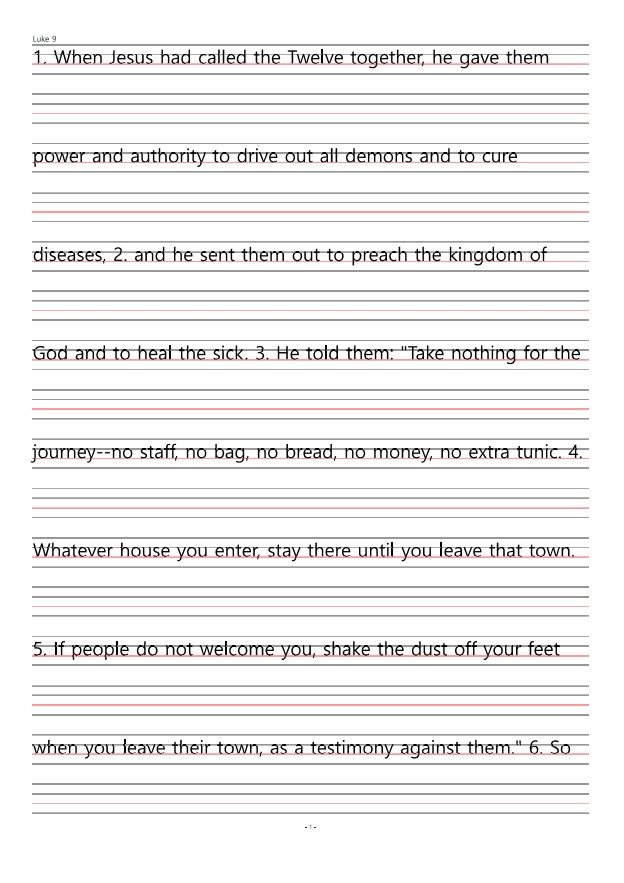 Luke 9
1. When Jesus had called the Twelve together, he gave them
power and authority to drive out all demons and to cure
diseases, 2. and he sent them out to preach the kingdom of
God and to heal the sick. 3. He told them: "Take nothing for the
journey--no staff, no bag, no bread, no money, no extra tunic. 4.
Whatever house you enter, stay there until you leave that town.
5. If people do not welcome you, shake the dust off your feet
when you leave their town, as a testimony against them." 6. So
- 1 -